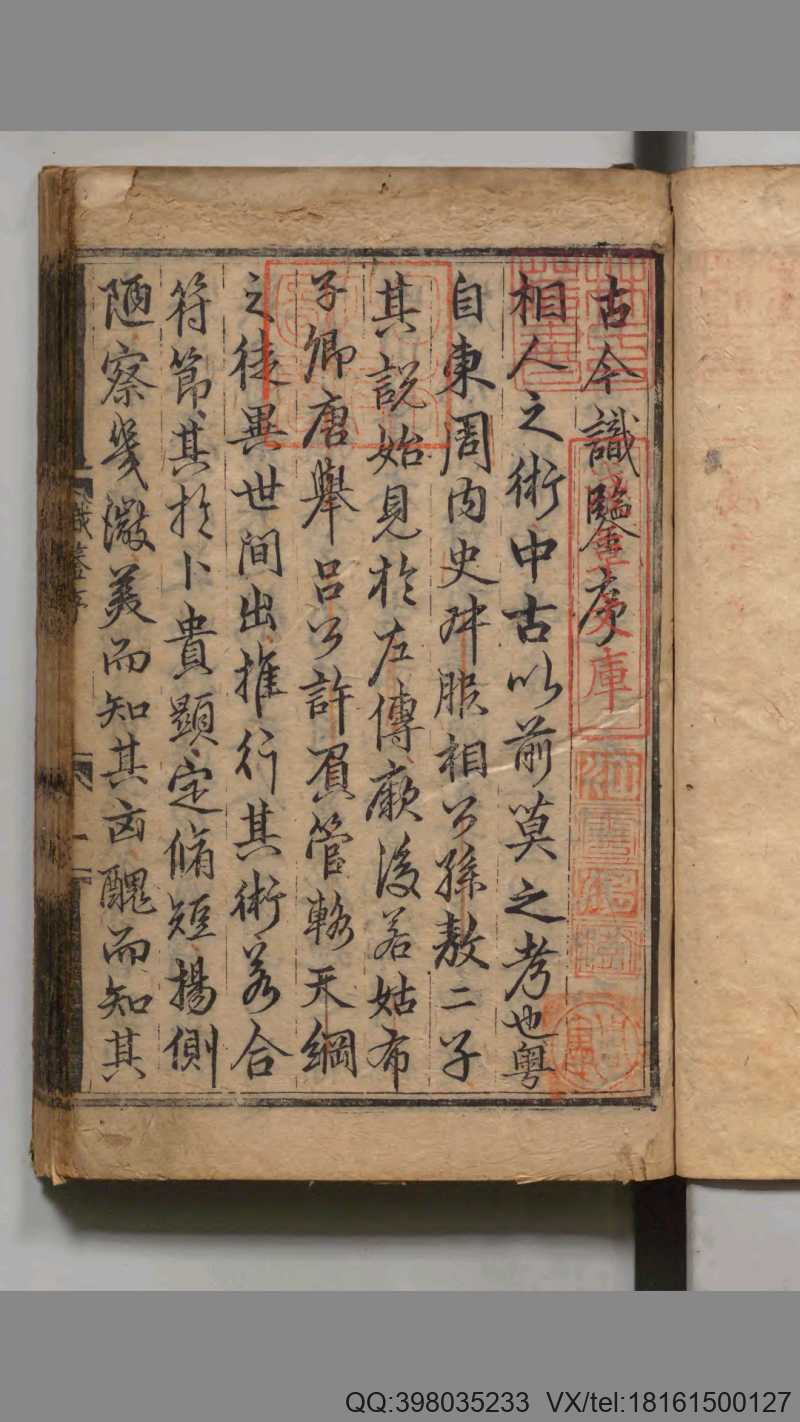 古今識鑒序
相人之術中古以前莫之考也粵
自東周內史叔服相公孫敖二子
其説始見於左傳厥後若姑布
子卿唐舉呂公許負管輅天綱
之徒異世間出推行其術若合
符節其於卜貴顯定脩短揚側
陋察幾微美而知其凶醜而知其
文庫
QQ:398035233 VX/tel:18161500127